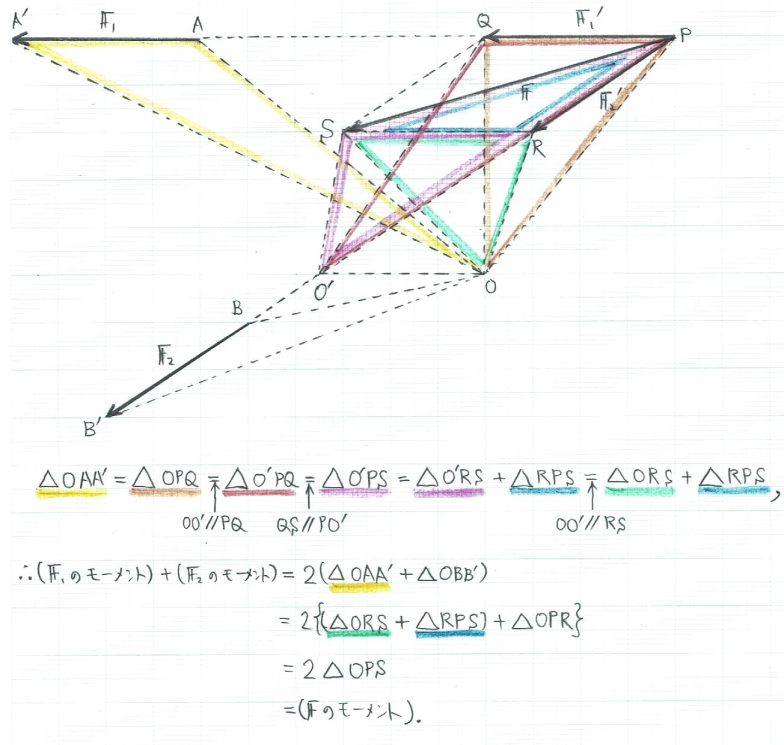 A' 𝔽₁ A Q 𝔽₁' P
S 𝔽 𝔽₂'
R
O' O
B
𝔽₂
B'
△OAA' = △OPQ = △O'PQ = △O'PS = △O'RS + △RPS = △ORS + △RPS,
OO'//PQ QS//PO' OO'//RS
∴(𝔽₁のモーメント)+(𝔽₂のモーメント) = 2(△OAA' + △OBB')
= 2{(△ORS + △RPS) + △OPR}
= 2△OPS
=(𝔽のモーメント).